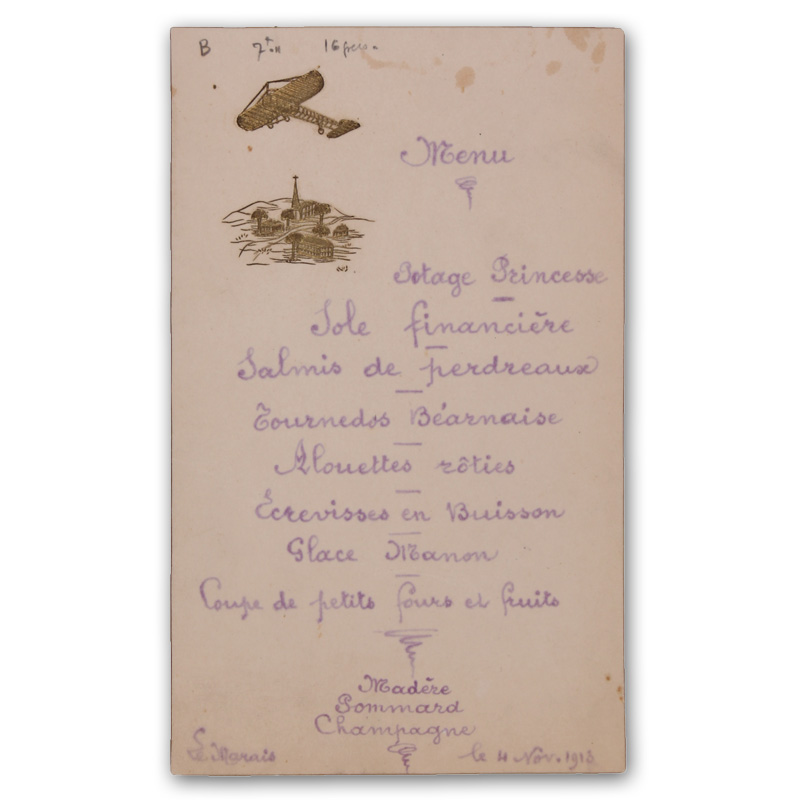 B 7th 16 pers.
Menu
Potage Princesse
Sole financière
Salmis de perdreaux
Tournedos Béarnaise
Alouettes rôties
Écrevisses en Buisson
Glace Manon
Coupe de petits fours et fruits
Madère
Pommard
Champagne
Le Marais
le 4 Nov. 1913